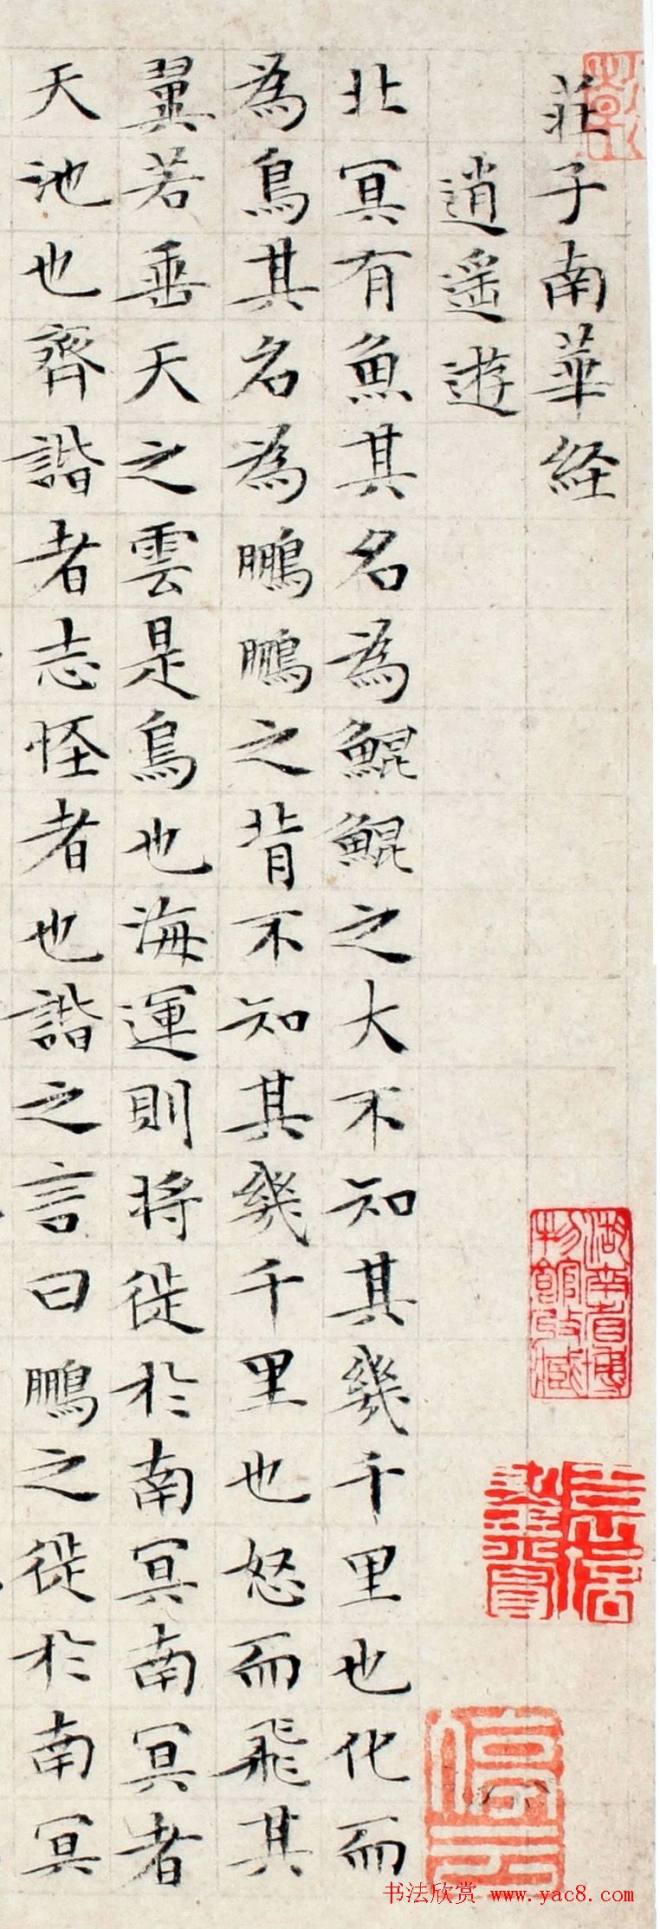 莊子南華経
逍遥遊
北冥有魚其名為鯤鯤之大不知其幾千里也化而
為鳥其名為鵬鵬之背不知其幾千里也怒而飛其
翼若垂天之雲是鳥也海運則将徙於南冥南冥者
天池也齊諧者志怪者也諧之言曰鵬之徙於南冥
湖南省博
物館收藏
停云
书法欣赏 www.yac8.com